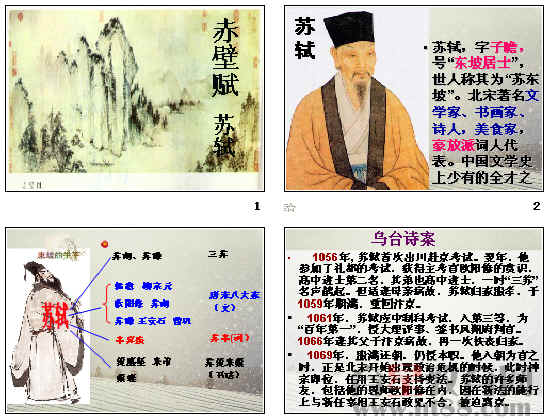 赤壁赋 苏轼
1
苏轼
• 苏轼,字子瞻,
号“东坡居士”,
世人称其为“苏东
坡”。北宋著名文
学家、书画家、
诗人,美食家,
豪放派词人代
表。中国文学史
上少有的全才之
2
苏轼
苏洵、苏辙 三苏
韩愈 柳宗元
欧阳修 苏洵
苏辙 王安石 曾巩
唐宋八大家
(文)
辛弃疾 苏辛(词)
黄庭坚、米芾
蔡襄
苏黄米蔡
(书法)
乌台诗案
• 1056年,苏轼首次出川赴京考试。翌年,他
参加了礼部的考试,获得主考官欧阳修的赏识,
高中进士第二名,其弟也高中进士,一时“三苏”
名声鹊起。但适逢母亲病故,苏轼归家服孝,于
1059年期满,重回汴京。
• 1061年,苏轼应中制科考试,入第三等,为
“百年第一”,授大理评事、签书凤翔府判官。
1066年逢其父于汴京病故,再一次扶丧归家。
• 1069年,服满还朝,仍授本职。他入朝为官之
时,正是北宋开始出现政治危机的时候,此时神
宗即位,任用王安石支持变法。苏轼的许多师
友,包括他的恩师欧阳修在内,因在新法的施行
上与新任宰相王安石政见不合,被迫离京。